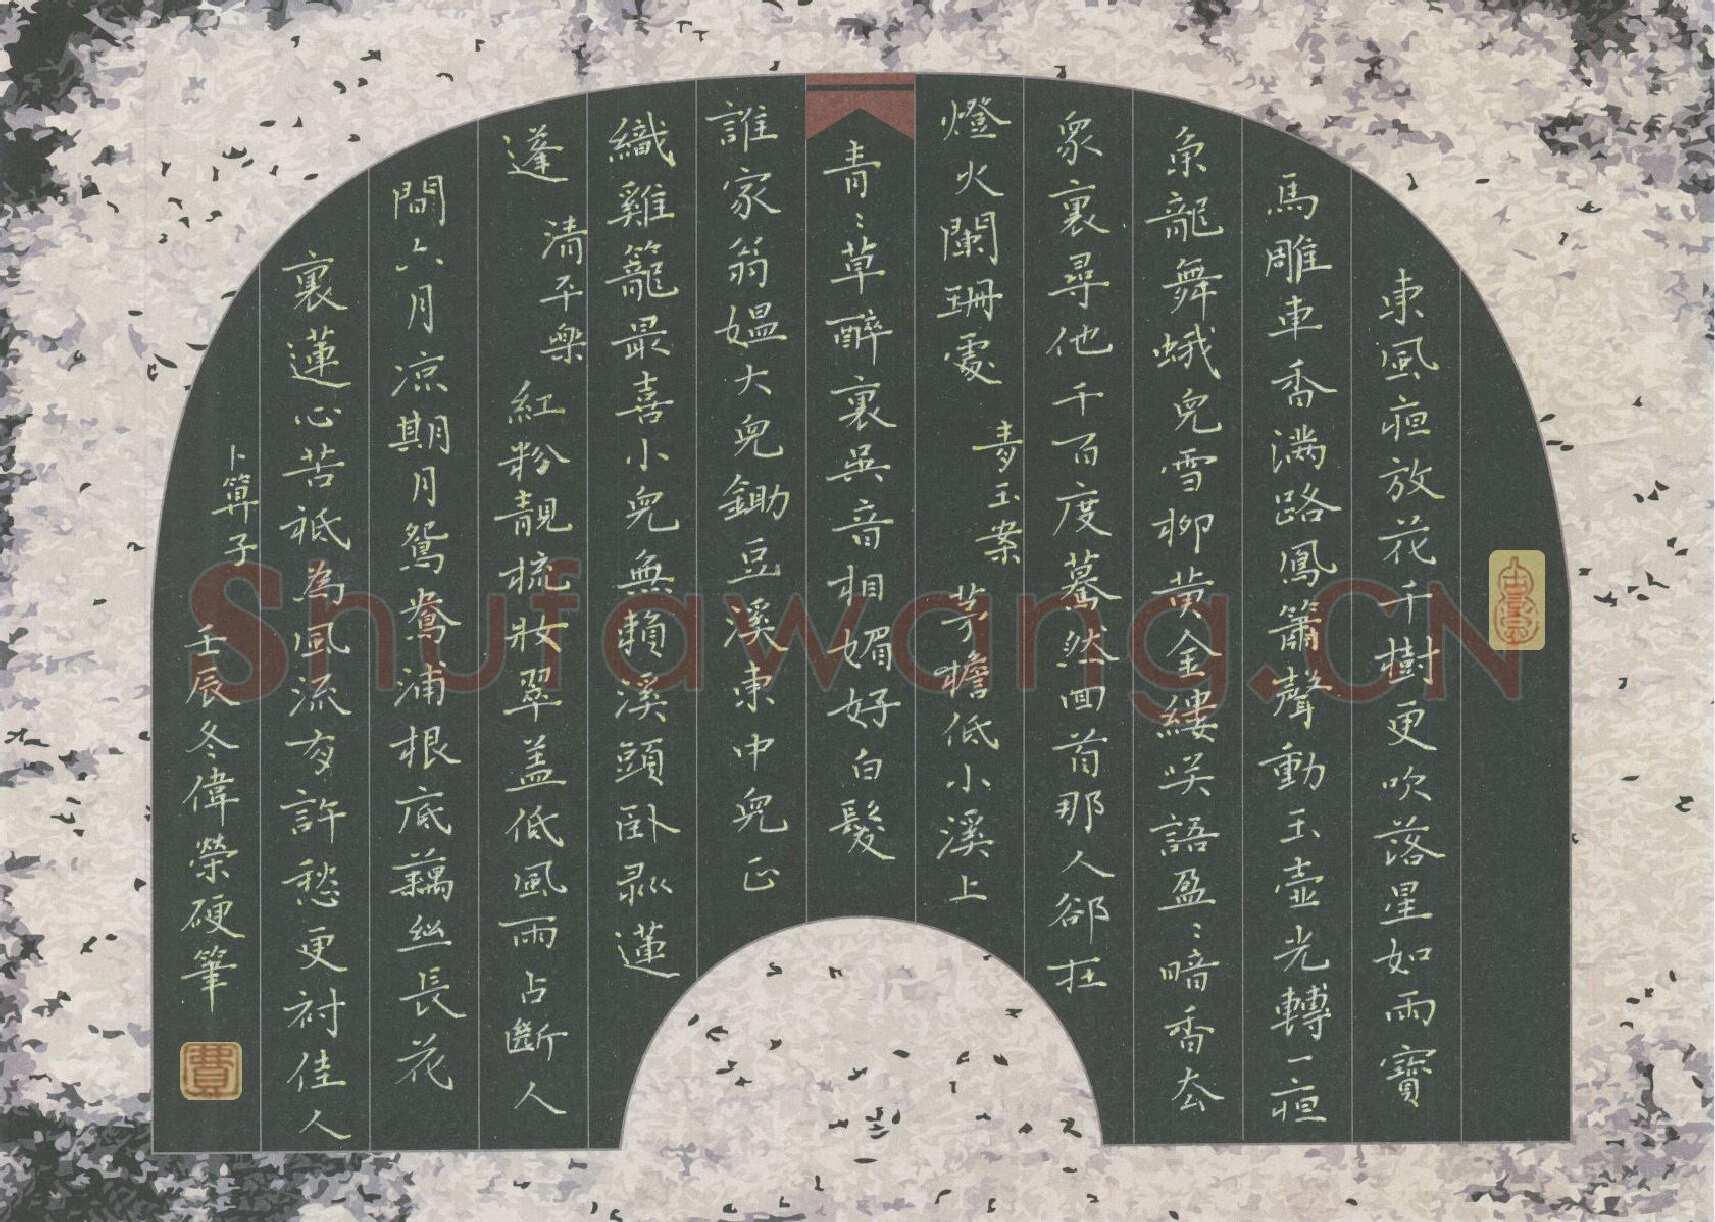 東風夜放花千樹更吹落星如雨寶
馬雕車香滿路鳳簫聲動玉壺光轉一夜
魚龍舞蛾兒雪柳黃金縷笑語盈〻暗香去
眾裏尋他千百度驀然回首那人卻在
燈火闌珊處 青玉案 茅檐低小溪上
青〻草醉裏吳音相媚好白髮
誰家翁媼大兒鋤豆溪東中兒正
織雞籠最喜小兒無賴溪頭臥剝蓮
蓬 清平樂 紅粉靚梳妝翠盖低風雨占斷人
間六月涼期月鴛鴦浦根底藕絲長花
裏蓮心苦衹為風流有許愁更衬佳人
卜算子 壬辰冬偉榮硬筆
費
Shufawang.CN